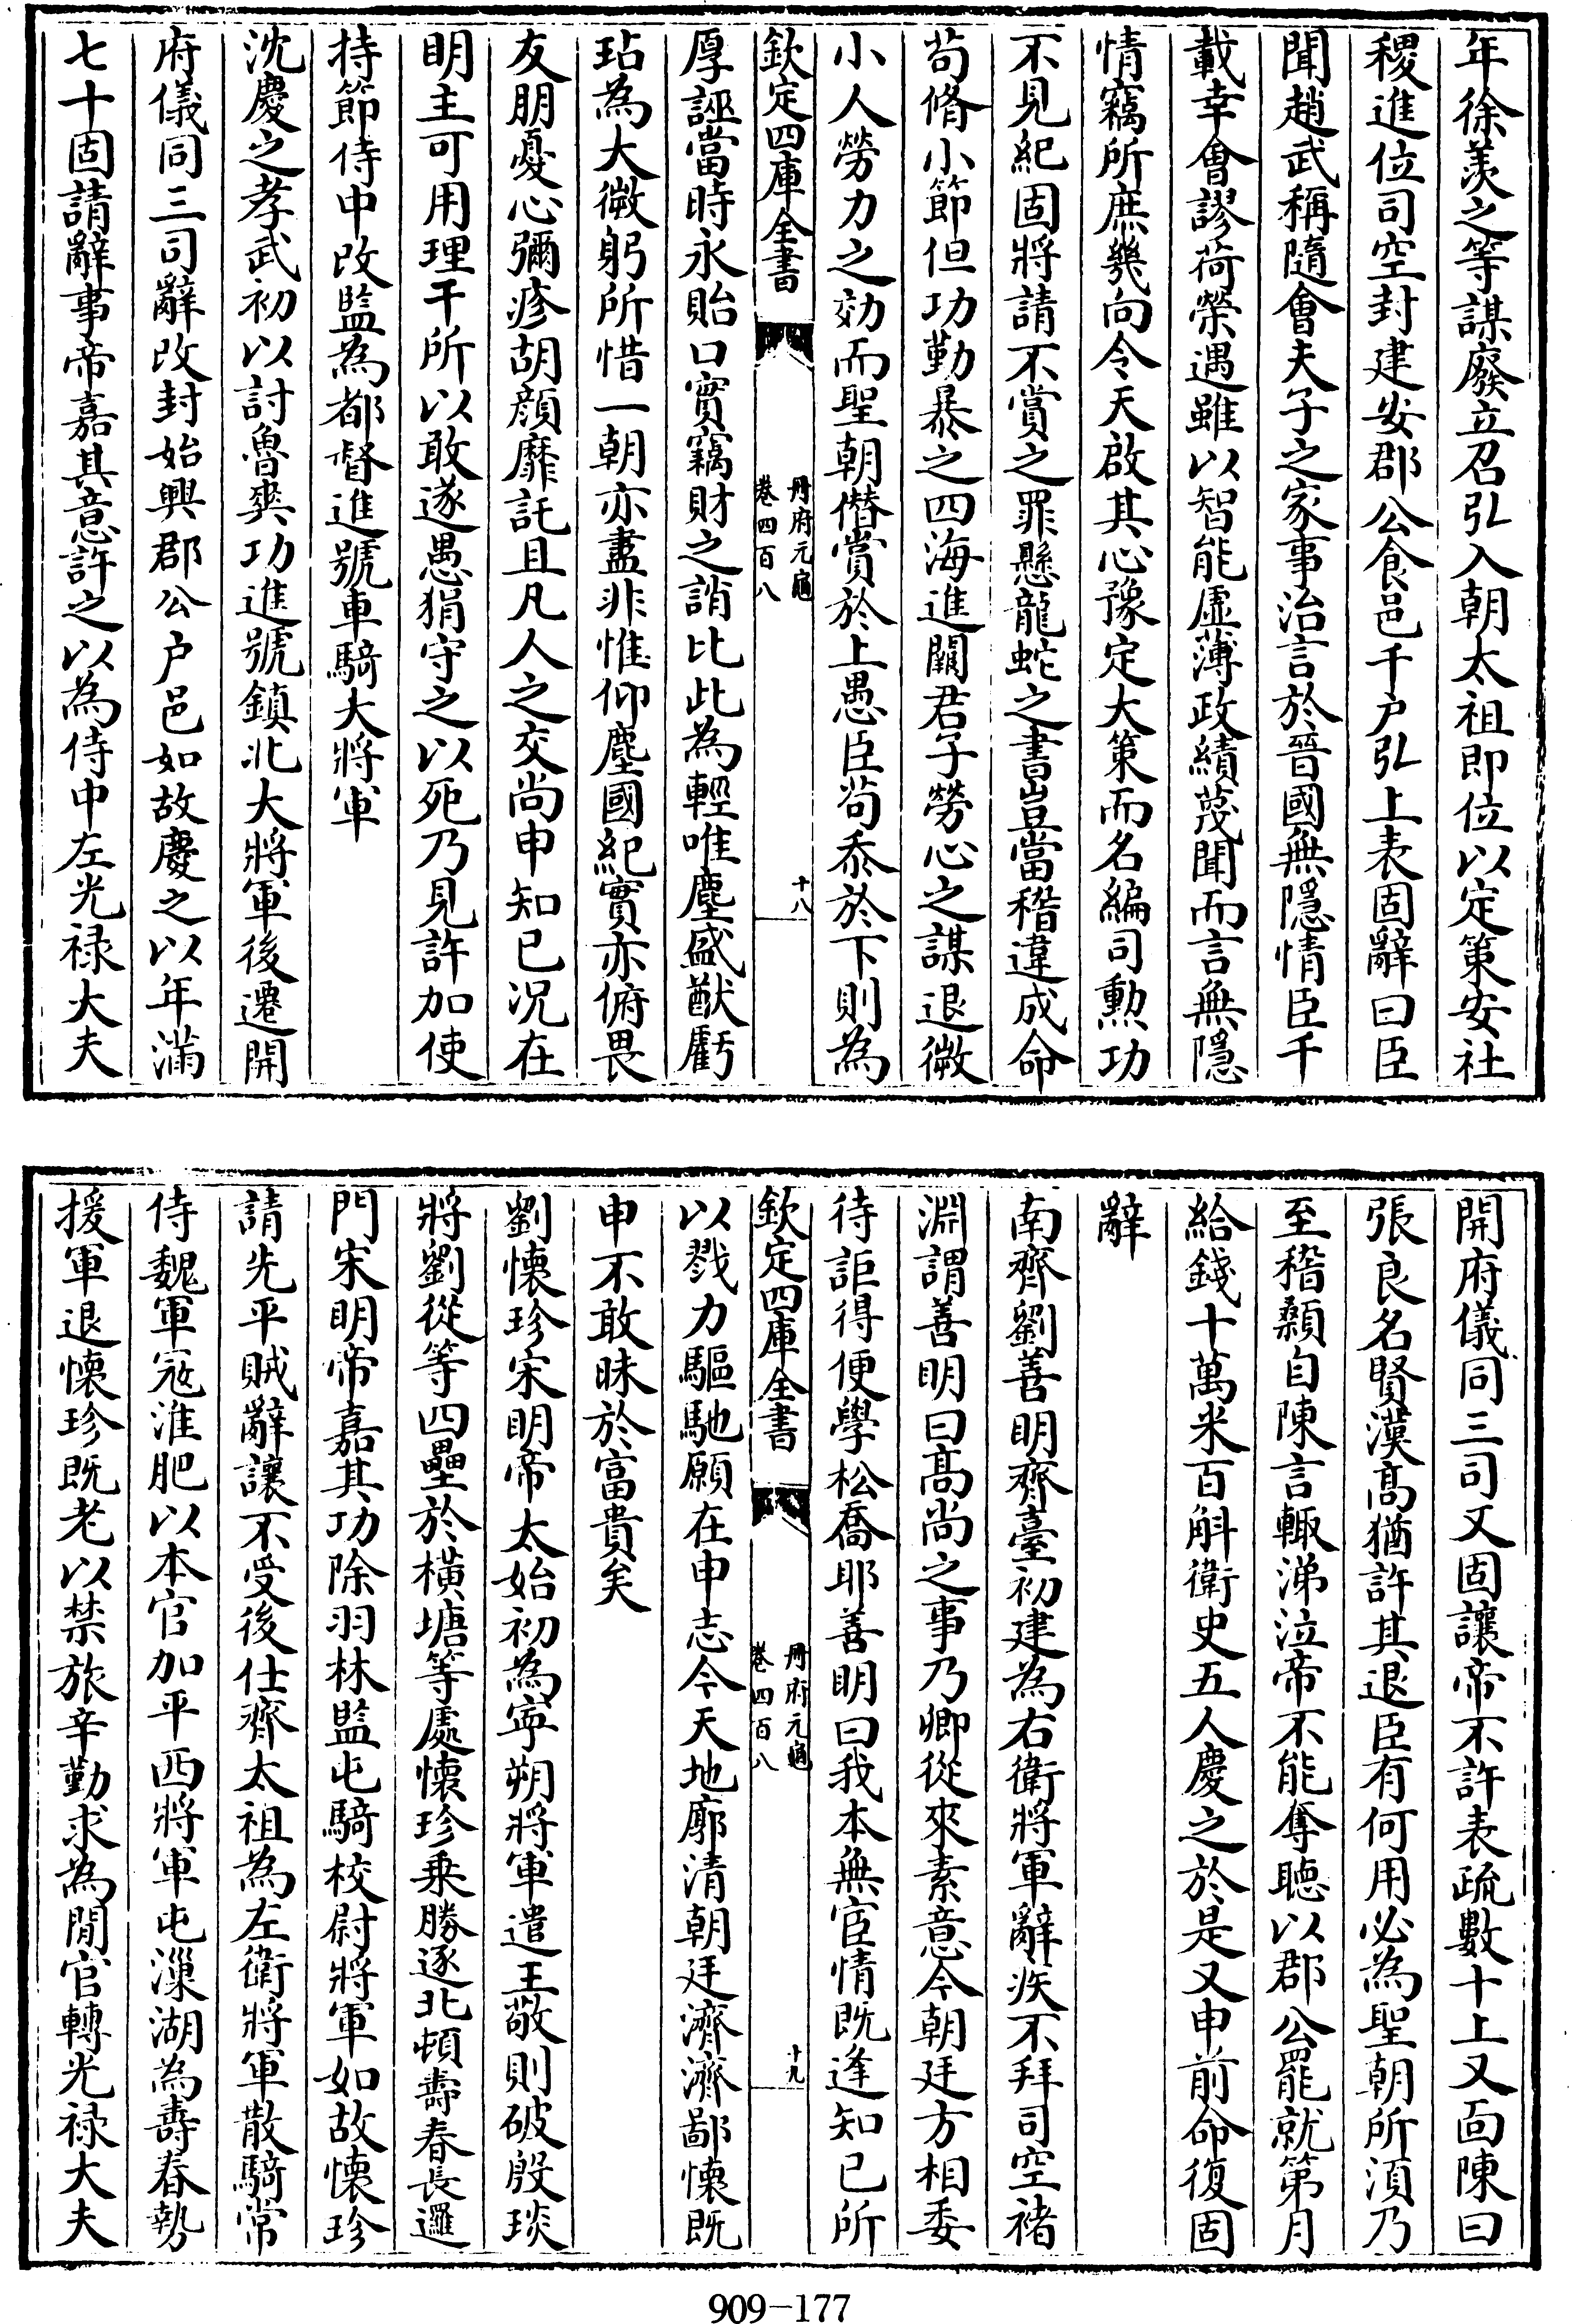 年徐羨之等謀廢立召弘入朝太祖即位以定策安社
稷進位司空封建安郡公食邑千户弘上表固辭曰臣
聞趙武稱隨會夫子之家事治言於晉國無隱情臣千
載幸會謬荷榮遇雖以智能虛薄政績蔑聞而言無隱
情竊所庶幾向令天啟其心豫定大策而名編司勲功
不見紀固將請不賞之罪懸龍蛇之書豈當稽違成命
苟脩小節但功勤暴之四海進闕君子勞心之謀退微
小人勞力之効而聖朝僭賞於上愚臣苟忝於下則為
欽定四庫全書
冊府元龜
卷四百八
十八
厚誣當時永貽口實竊財之誚比此為輕唯塵盛猷虧
玷為大微躬所惜一朝亦盡非惟仰塵國紀實亦俯畏
友朋憂心彌疹胡顔靡託且凡人之交尚申知已况在
明主可用理干所以敢遂愚狷守之以死乃見許加使
持節侍中改監為都督進號車騎大將軍
沈慶之孝武初以討魯爽功進號鎮北大將軍後遷開
府儀同三司辭改封始興郡公户邑如故慶之以年滿
七十固請辭事帝嘉其意許之以為侍中左光禄大夫
開府儀同三司又固讓帝不許表疏數十上又面陳曰
張良名賢漢髙猶許其退臣有何用必為聖朝所湏乃
至稽顙自陳言輙涕泣帝不能奪聽以郡公罷就第月
給錢十萬米百斛衛史五人慶之於是又申前命復固
辭
南齊劉善明齊臺初建為右衛將軍辭疾不拜司空褚
淵謂善明曰髙尚之事乃卿從來素意今朝廷方相委
待詎得便學松喬耶善明曰我本無宦情既逢知已所
欽定四庫全書
冊府元龜
卷四百八
十九
以戮力驅馳願在申志今天地廓清朝廷濟濟鄙懷既
申不敢昧於富貴矣
劉懷珍宋明帝太始初為寧朔將軍遣王敬則破殷琰
將劉從等四壘於橫塘等處懷珍乗勝逐北頓壽春長邏
門宋明帝嘉其功除羽林監屯騎校尉將軍如故懷珍
請先平賊辭讓不受後仕齊太祖為左衛將軍散騎常
侍魏軍宼淮肥以本官加平西將軍屯漅湖為壽春勢
援軍退懷珍既老以禁旅辛勤求為閒官轉光禄大夫
909-177